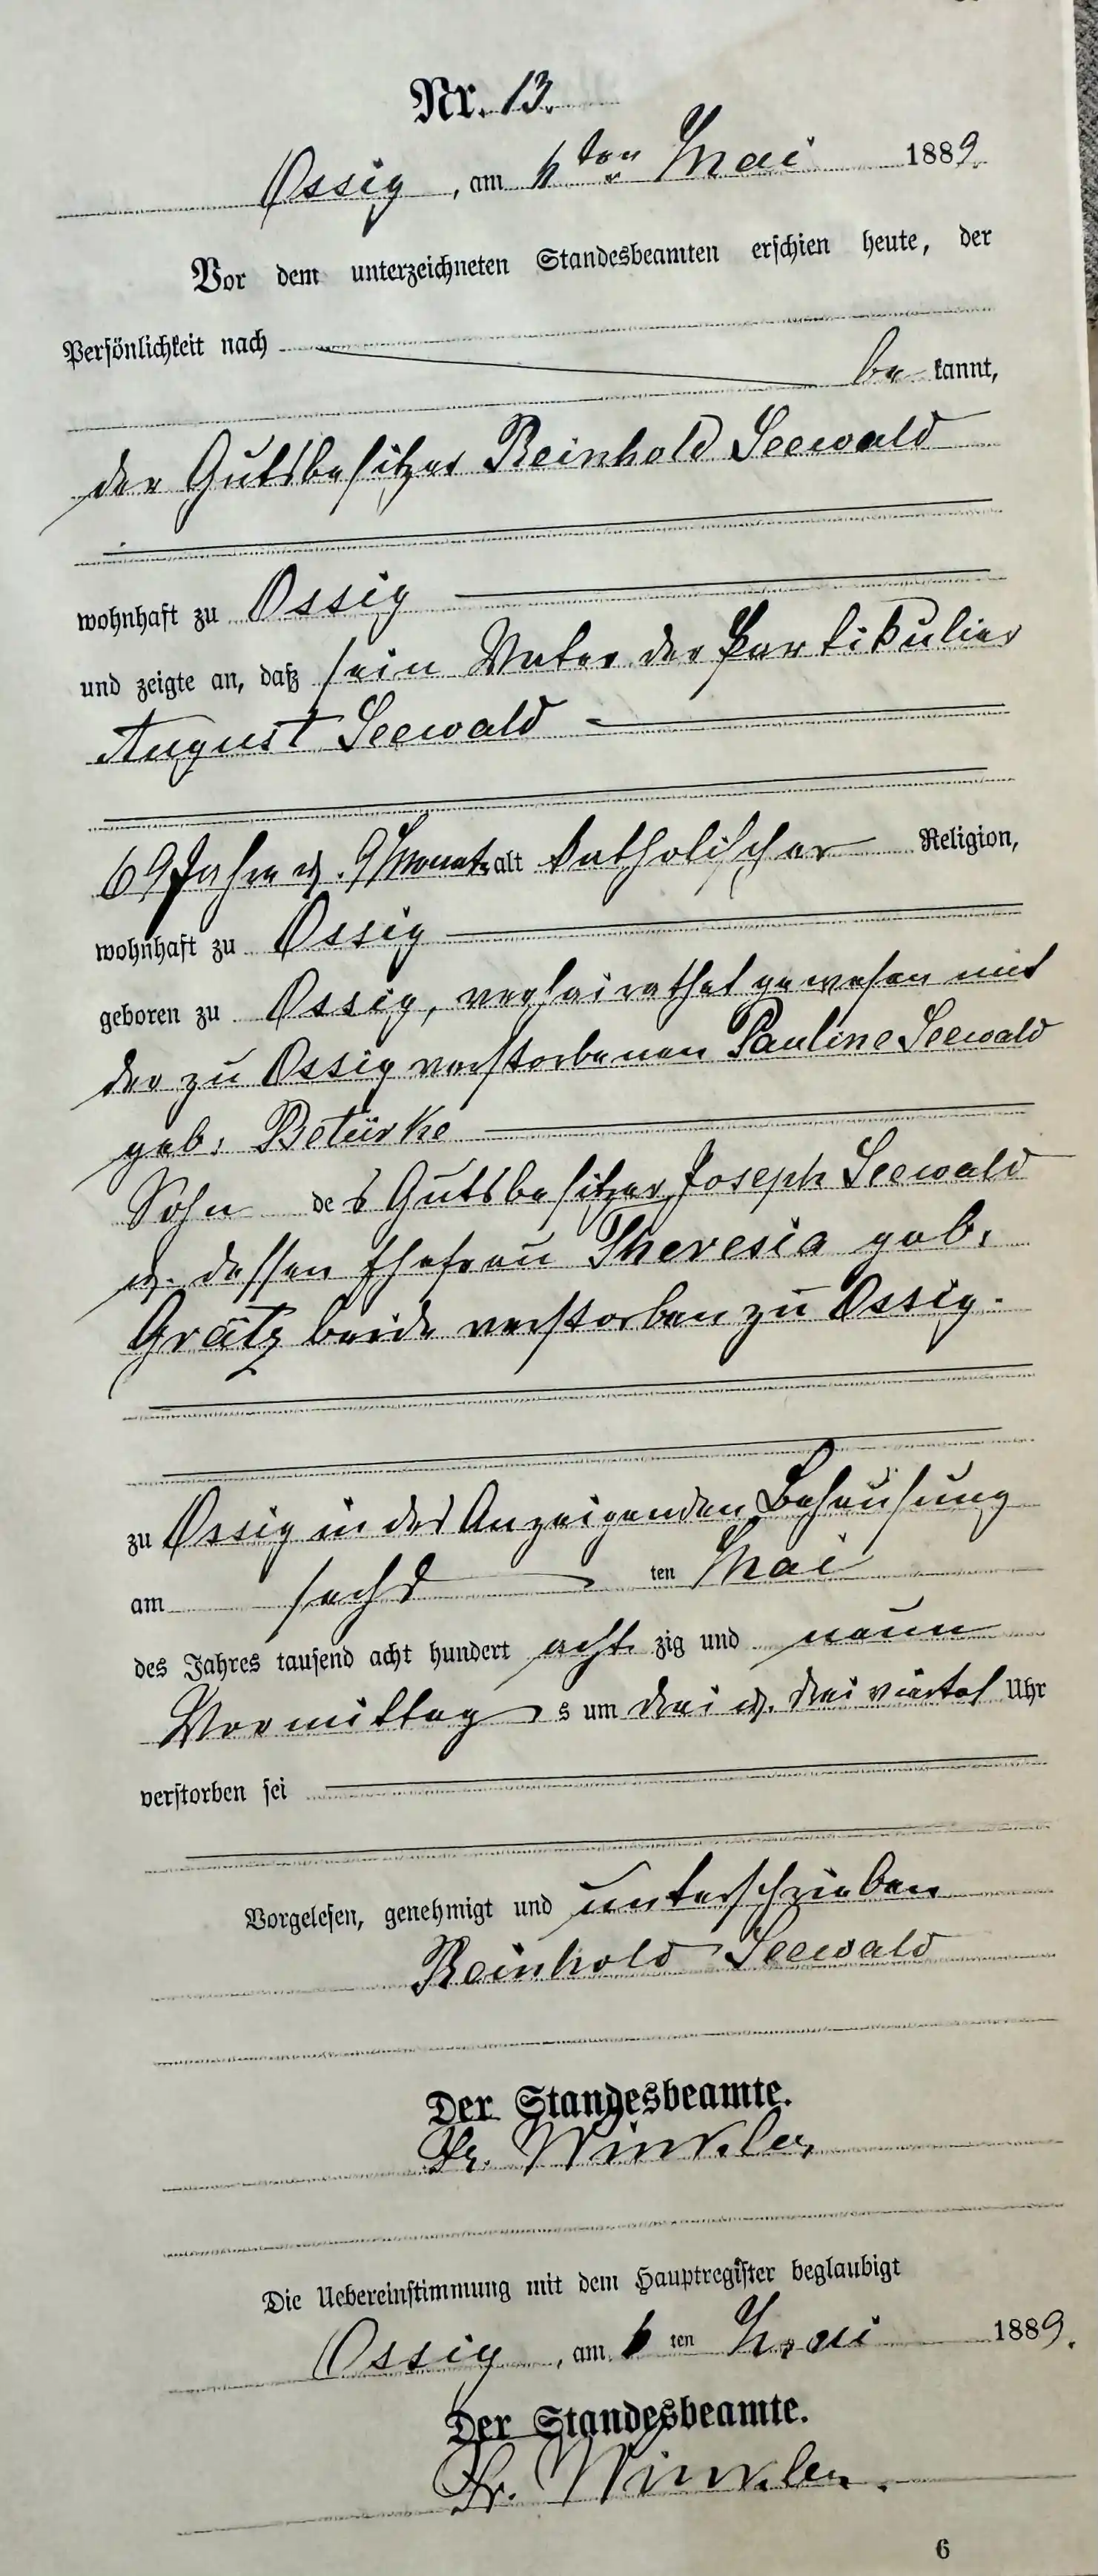 Nr. 13.
Ossig, am 6ten Mai 1889.
Vor dem unterzeichneten Standesbeamten erschien heute, der
Persönlichkeit nach
be kannt,
der Gutsbesitzer Reinhold Seewald
wohnhaft zu Ossig
und zeigte an, daß sein Vater der Partikulier
August Seewald
69 Jahre u. 9 Monate alt katholischer Religion,
wohnhaft zu Ossig
geboren zu Ossig, verheirathet gewesen mit
der zu Ossig verstorbenen Pauline Seewald
geb. Betürke
Sohn des Gutsbesitzer Joseph Seewald
u. dessen Ehefrau Theresia geb.
Grätz beide verstorben zu Ossig.
zu Ossig in des Anzeigenden Behausung
am sechs ten Mai
des Jahres tausend acht hundert acht zig und neun
Vormittag s um drei u. drei viertel Uhr
verstorben sei
Vorgelesen, genehmigt und unterschrieben
Reinhold Seewald
Der Standesbeamte.
Fr. Winkler
Die Uebereinstimmung mit dem Hauptregister beglaubigt
Ossig, am 6 ten Mai 1889.
Der Standesbeamte.
Fr. Winkler.
6